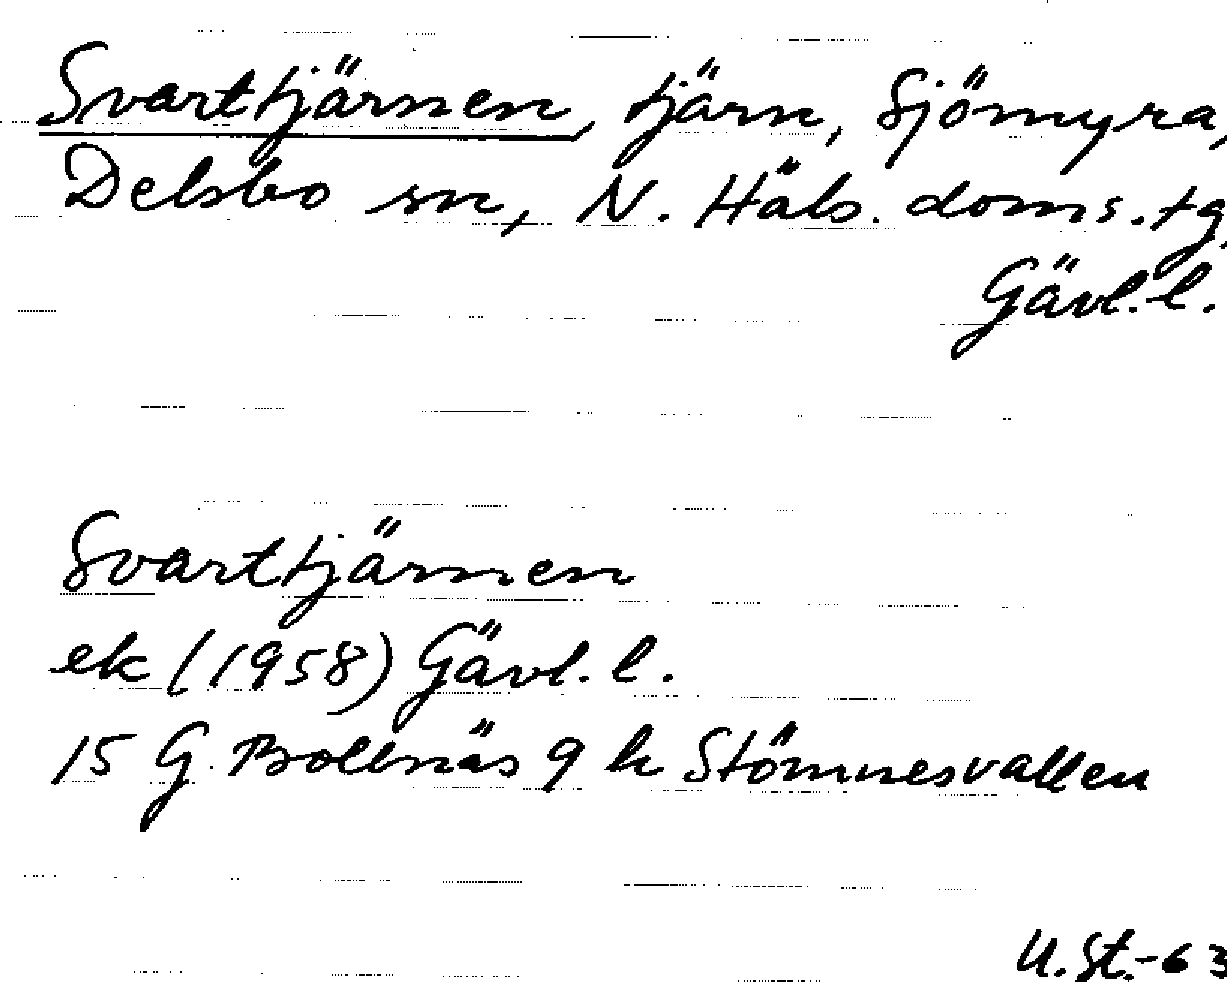 Svarttjärnen, tjärn, Sjömyra,
Delsbo sn, N. Häls. doms.tg,
Gävl.l.
Svarttjärnen
ek (1958) Gävl. l.
15 G Bollnäs 9 h Stömnesvallen
U.St.-63